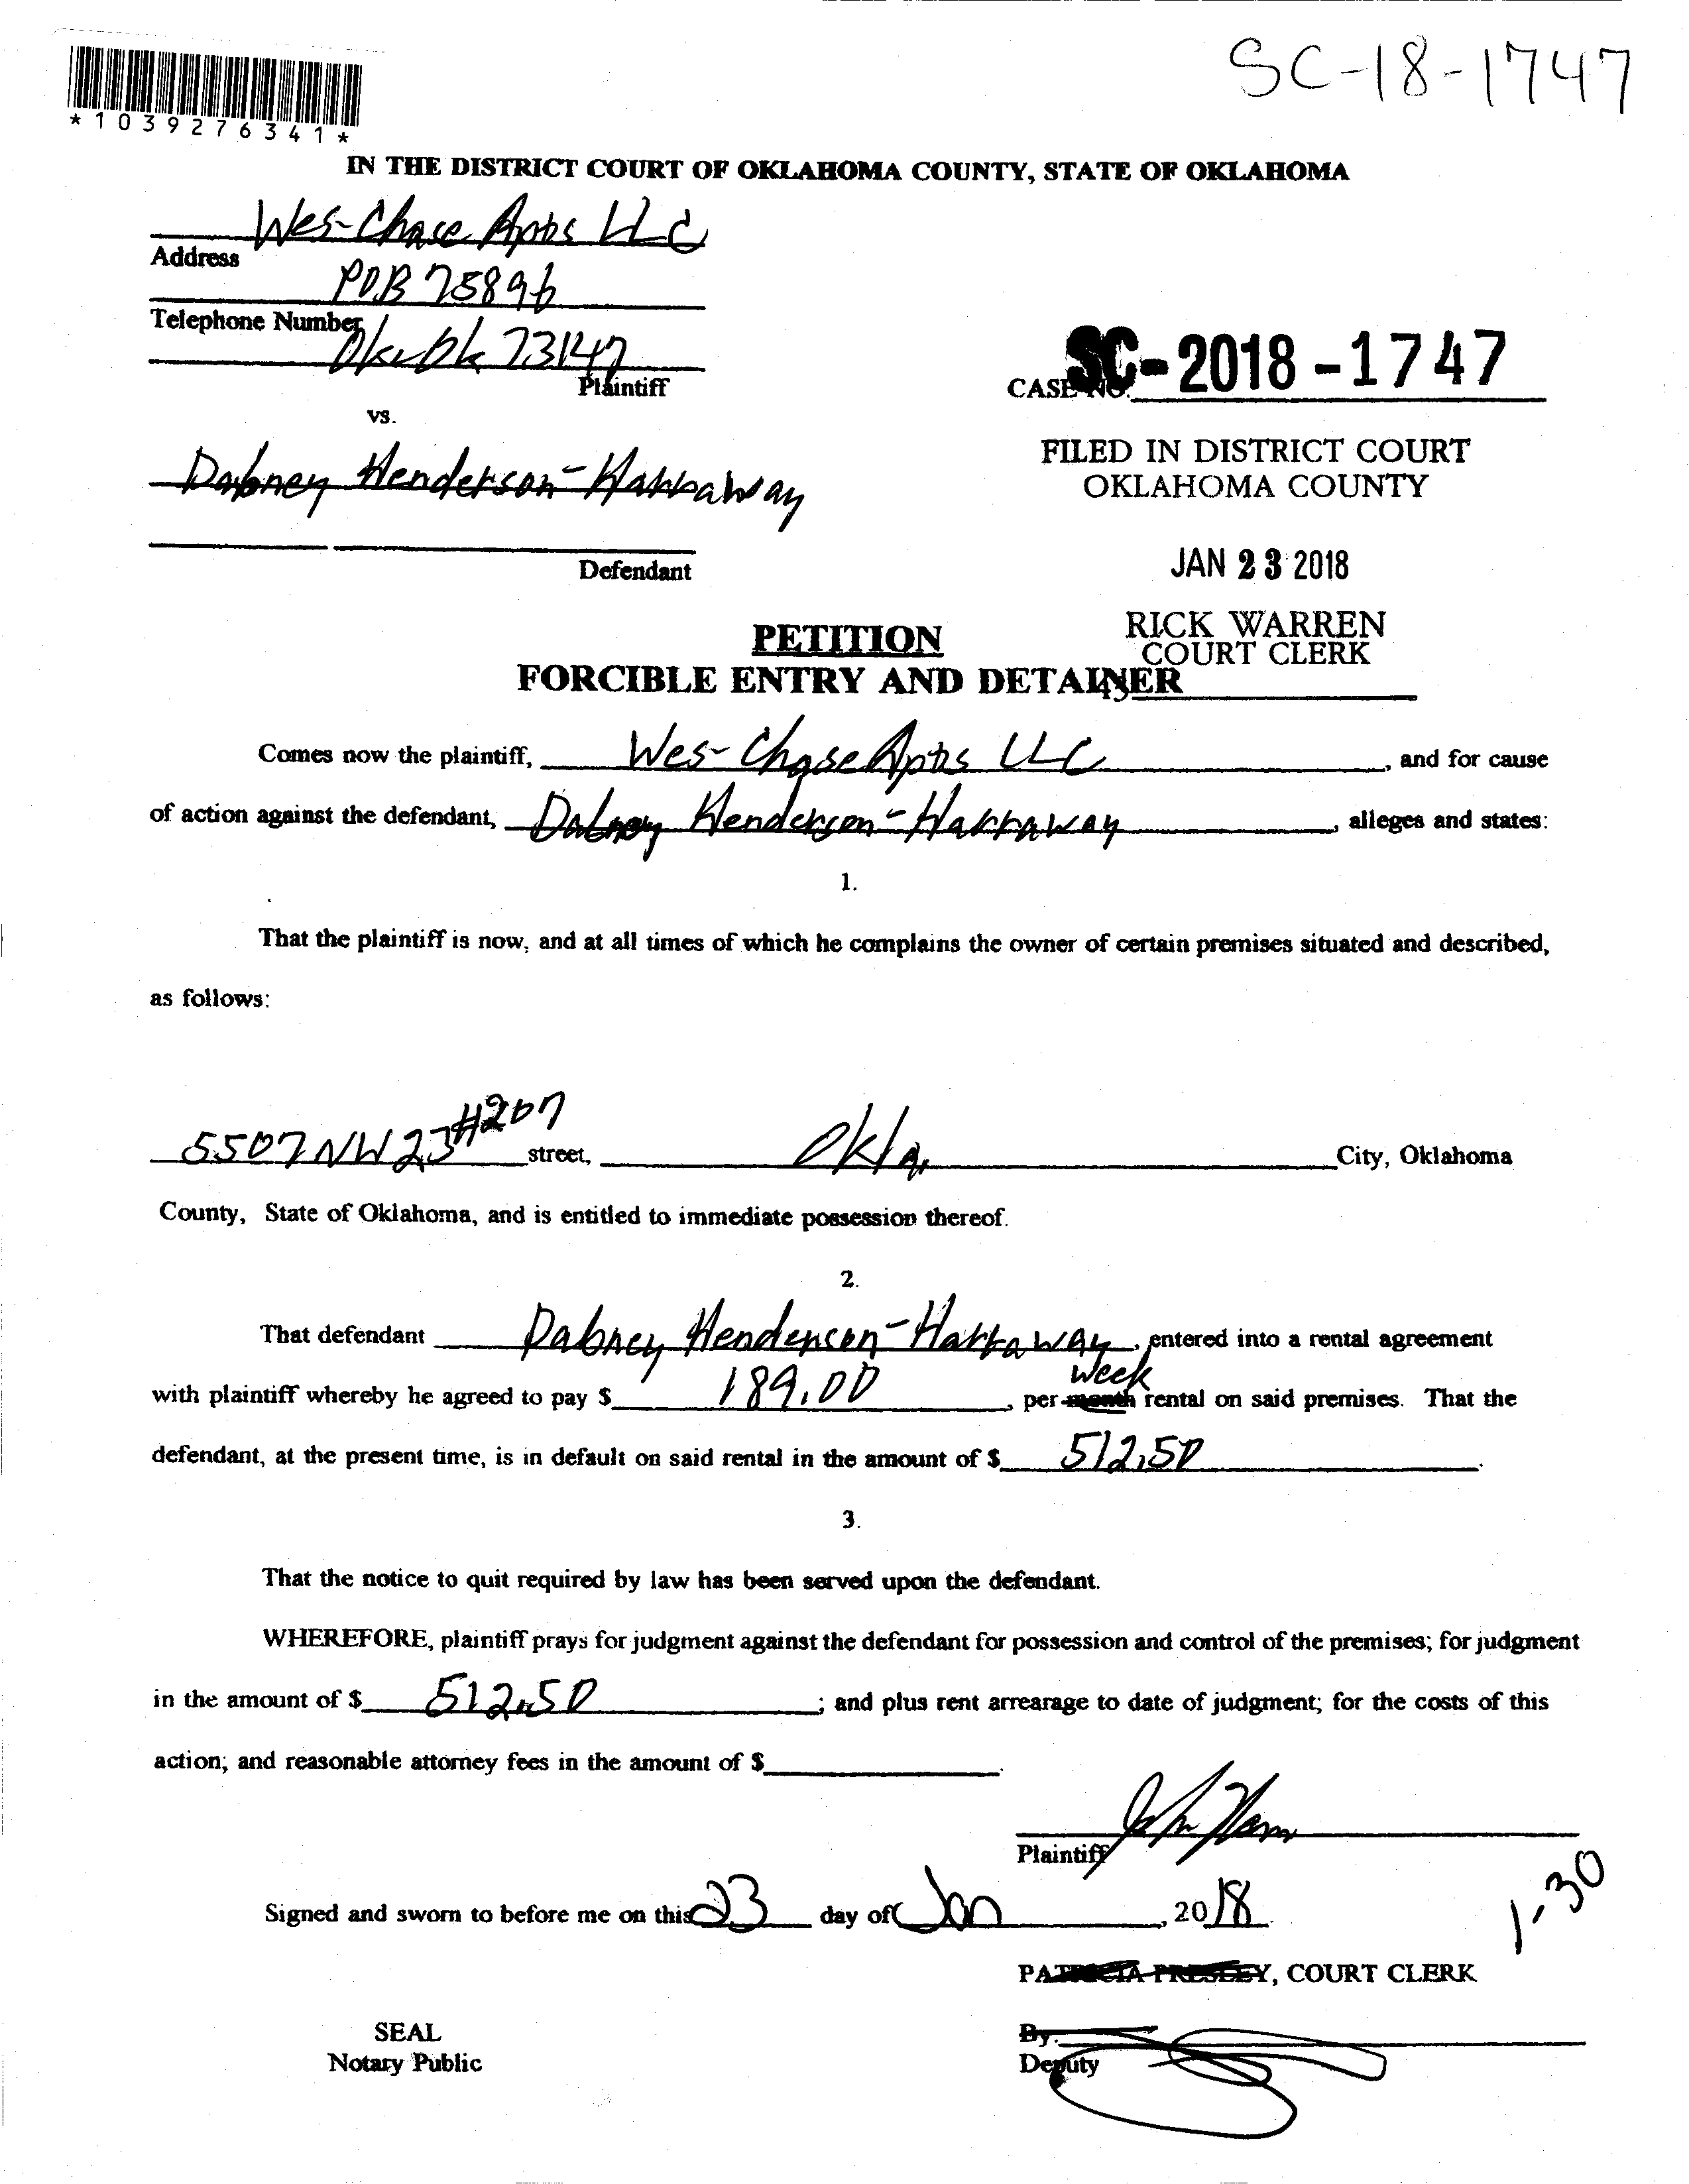 SC-18-1747
*1039276341*
IN THE DISTRICT COURT OF OKLAHOMA COUNTY, STATE OF OKLAHOMA
Wes-Chase Apts LLC
Address
POB 75896
Telephone Number
Okc Ok 73147
Plaintiff
CASE NO. SC-2018-1747
vs.
FILED IN DISTRICT COURT
OKLAHOMA COUNTY
Dabney Henderson-Harraway
Defendant
JAN 23 2018
RICK WARREN
COURT CLERK
PETITION
FORCIBLE ENTRY AND DETAINER
Comes now the plaintiff, Wes-Chase Apts LLC, and for cause
of action against the defendant, Dabney Henderson-Harraway, alleges and states:
1.
That the plaintiff is now, and at all times of which he complains the owner of certain premises situated and described,
as follows:
5507 NW 23 #207 street, Okla. City, Oklahoma
County, State of Oklahoma, and is entitled to immediate possession thereof.
2.
That defendant Dabney Henderson-Harraway, entered into a rental agreement
week
with plaintiff whereby he agreed to pay $ 189.00, per month rental on said premises. That the
defendant, at the present time, is in default on said rental in the amount of $ 512.50.
3.
That the notice to quit required by law has been served upon the defendant.
WHEREFORE, plaintiff prays for judgment against the defendant for possession and control of the premises; for judgment
in the amount of $ 512.50; and plus rent arrearage to date of judgment; for the costs of this
action; and reasonable attorney fees in the amount of $
Plaintiff
1-30
Signed and sworn to before me on this 23 day of Jan, 2018.
PATRICIA PRESLEY, COURT CLERK
SEAL
Notary Public
By:
Deputy